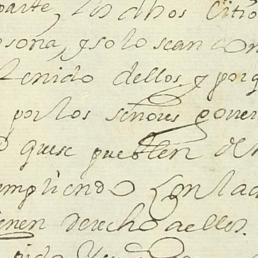 parte los dhos Citio
sona, y solo sean con
tenido dellos y porq
por los señores gover
quese pueblen de
umpliendo Con la
ienen derecho aellos.